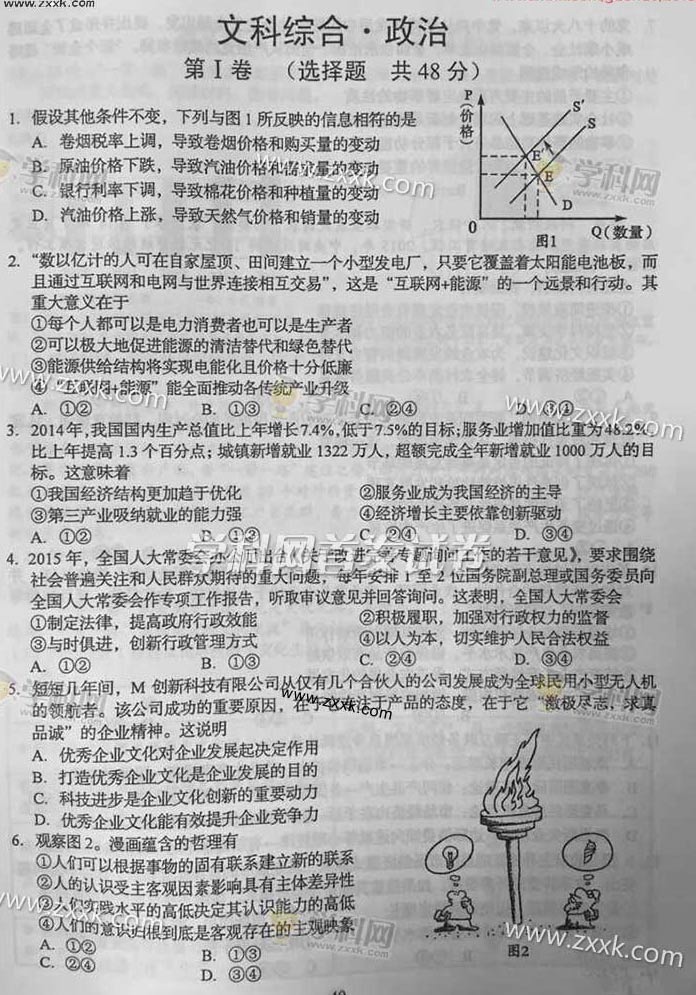 www.zxxk.com
文科综合·政治
第Ⅰ卷 （选择题 共48分）
1. 假设其他条件不变，下列与图1所反映的信息相符的是
A. 卷烟税率上调，导致卷烟价格和购买量的变动
B. 原油价格下跌，导致汽油价格和销售量的变动
C. 银行利率下调，导致棉花价格和种植量的变动
D. 汽油价格上涨，导致天然气价格和销量的变动
P
(价格)
S'
S
E'
E
D
0
Q(数量)
图1
2. “数以亿计的人可在自家屋顶、田间建立一个小型发电厂，只要它覆盖着太阳能电池板，而
且通过互联网和电网与世界连接相互交易”，这是“互联网+能源”的一个远景和行动。其
重大意义在于
①每个人都可以是电力消费者也可以是生产者
②可以极大地促进能源的清洁替代和绿色替代
③能源供给结构将实现电能化且价格十分低廉
④“互联网+能源”能全面推动各传统产业升级
A. ①② B. ①③ C. ②④ D. ③④
3. 2014年,我国国内生产总值比上年增长7.4%,低于7.5%的目标;服务业增加值比重为48.2%
比上年提高1.3个百分点；城镇新增就业1322万人，超额完成全年新增就业1000万人的目
标。这意味着
①我国经济结构更加趋于优化 ②服务业成为我国经济的主导
③第三产业吸纳就业的能力强 ④经济增长主要依靠创新驱动
A. ①② B. ①③ C. ②④ D. ③④
4. 2015年，全国人大常委会办公厅出台《关于改进 专题询问工作的若干意见》，要求围绕
社会普遍关注和人民群众期待的重大问题，每年安排1至2位国务院副总理或国务委员向
全国人大常委会作专项工作报告，听取审议意见并回答询问。这表明，全国人大常委会
①制定法律，提高政府行政效能 ②积极履职，加强对行政权力的监督
③与时俱进，创新行政管理方式 ④以人为本，切实维护人民合法权益
A. ①② B. ①③ C. ②④ D. ③④
5. 短短几年间，M创新科技有限公司从仅有几个合伙人的公司发展成为全球民用小型无人机
的领航者。该公司成功的重要原因，在于它专注于产品的态度，在于它“激极尽志，求真
品诚”的企业精神。这说明
A. 优秀企业文化对企业发展起决定作用
B. 打造优秀企业文化是企业发展的目的
C. 科技进步是企业文化创新的重要动力
D. 优秀企业文化能有效提升企业竞争力
6. 观察图2。漫画蕴含的哲理有
①人们可以根据事物的固有联系建立新的联系
②人的认识受主客观因素影响具有主体差异性
③人们实践水平的高低决定其认识能力的高低
④人们的意识归根到底是客观存在的主观映象
A. ①② B. ①③
C. ②④ D. ③④
图2
学科网
学科网首发试卷
www.zxxk.com